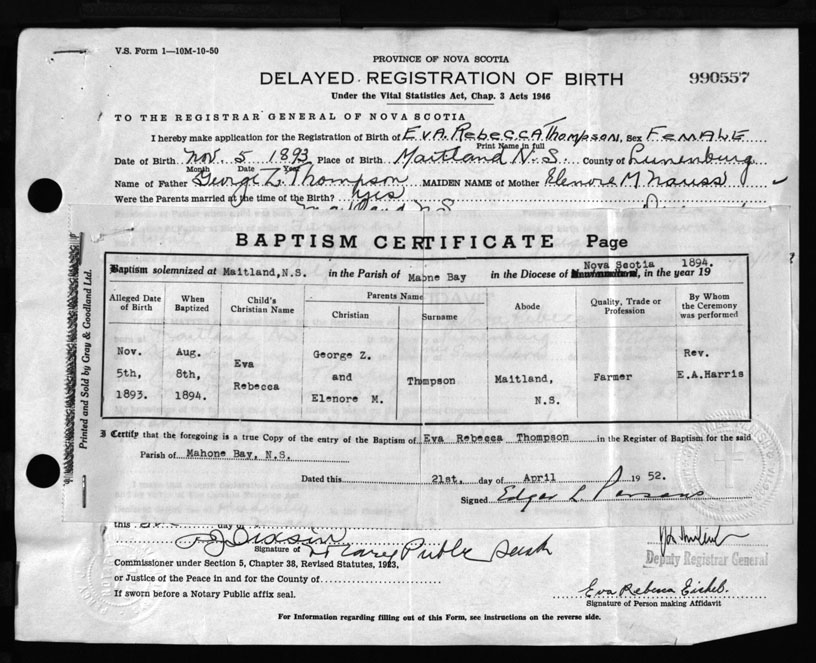 V.S. Form 1—10M-10-50
PROVINCE OF NOVA SCOTIA
DELAYED REGISTRATION OF BIRTH
990557
Under the Vital Statistics Act, Chap. 3 Acts 1946
TO THE REGISTRAR GENERAL OF NOVA SCOTIA
I hereby make application for the Registration of Birth of EVA REBECCA Thompson, Sex FEMALE
Print Name in full
Date of Birth Nov. 5 1893 Place of Birth Maitland N.S. County of Lunenburg
Month Date Year
Name of Father George Z. Thompson MAIDEN NAME of Mother Elenore M Nauss
Were the Parents married at the time of the Birth? Yes
BAPTISM CERTIFICATE Page
Baptism solemnized at Maitland, N.S. in the Parish of Mahone Bay in the Diocese of Nova Scotia, in the year 19 1894.
Alleged Date of Birth
When Baptized
Child's Christian Name
Parents Name
Christian
Surname
Abode
Quality, Trade or Profession
By Whom the Ceremony was performed
Nov. 5th, 1893.
Aug. 8th, 1894.
Eva Rebecca
George Z. and Elenore M.
Thompson
Maitland, N.S.
Farmer
Rev. E.A.Harris
I Certify that the foregoing is a true Copy of the entry of the Baptism of Eva Rebecca Thompson in the Register of Baptism for the said
Parish of Mahone Bay, N.S.
Dated this 21st, day of April 19 52.
Signed Edgar L Parsons
Printed and Sold by Gray & Goodland Ltd.
this day of
Signature of Notary Public
Commissioner under Section 5, Chapter 38, Revised Statutes, 1923,
or Justice of the Peace in and for the County of
If sworn before a Notary Public affix seal.
Deputy Registrar General
Eva Rebecca Eisnel.
Signature of Person making Affidavit
For Information regarding filling out of this Form, see instructions on the reverse side.